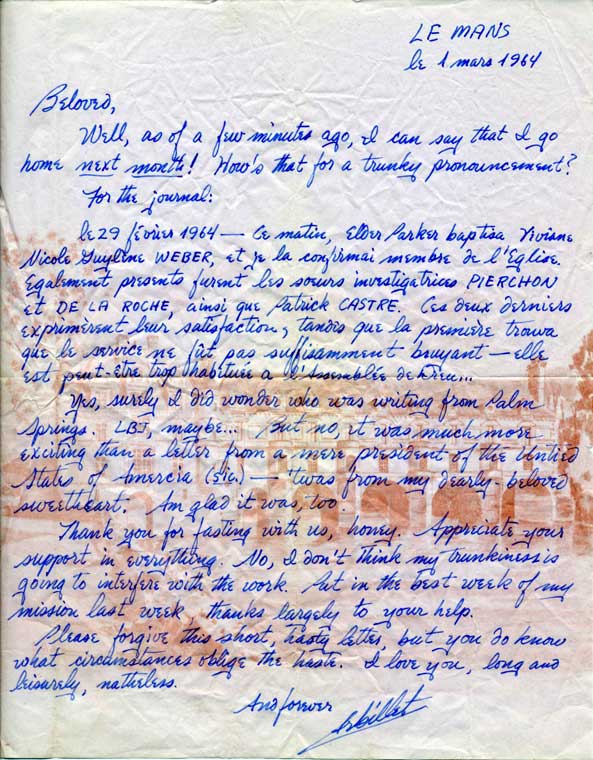 LE MANS
le 1 mars 1964
Beloved,
Well, as of a few minutes ago, I can say that I go
home next month! How's that for a trunky pronouncement?
For the journal:
le 29 février 1964 — Ce matin, Elder Parker baptisa Viviane
Nicole Guylène WEBER, et je la confirmai membre de l'Eglise.
Egalement presents furent les soeurs investigatrices PIERCHON
et DE LA ROCHE, ainsi que Patrick CASTRE. Ces deux derniers
exprimèrent leur satisfaction, tandis que la première trouva
que le service ne fût pas suffisamment bruyant — elle
est peut-être trop habituée a l'Assemblée de Dieu...
Yes, surely I did wonder who was writing from Palm
Springs. LBJ, maybe... But no, it was much more
exciting than a letter from a mere president of thee Untied
States of Amercia (sic.) — 'twas from my dearly-beloved
sweetheart. Am glad it was, too.
Thank you for fasting with us, honey. Appreciate your
support in everything. No, I don't think my trunkiness is
going to interfere with the work. Put in the best week of my
mission last week, thanks largely to your help.
Please forgive this short, hasty letter, but you do know
what circumstances oblige the haste. I love you, long and
leisurely, natheless.
And forever